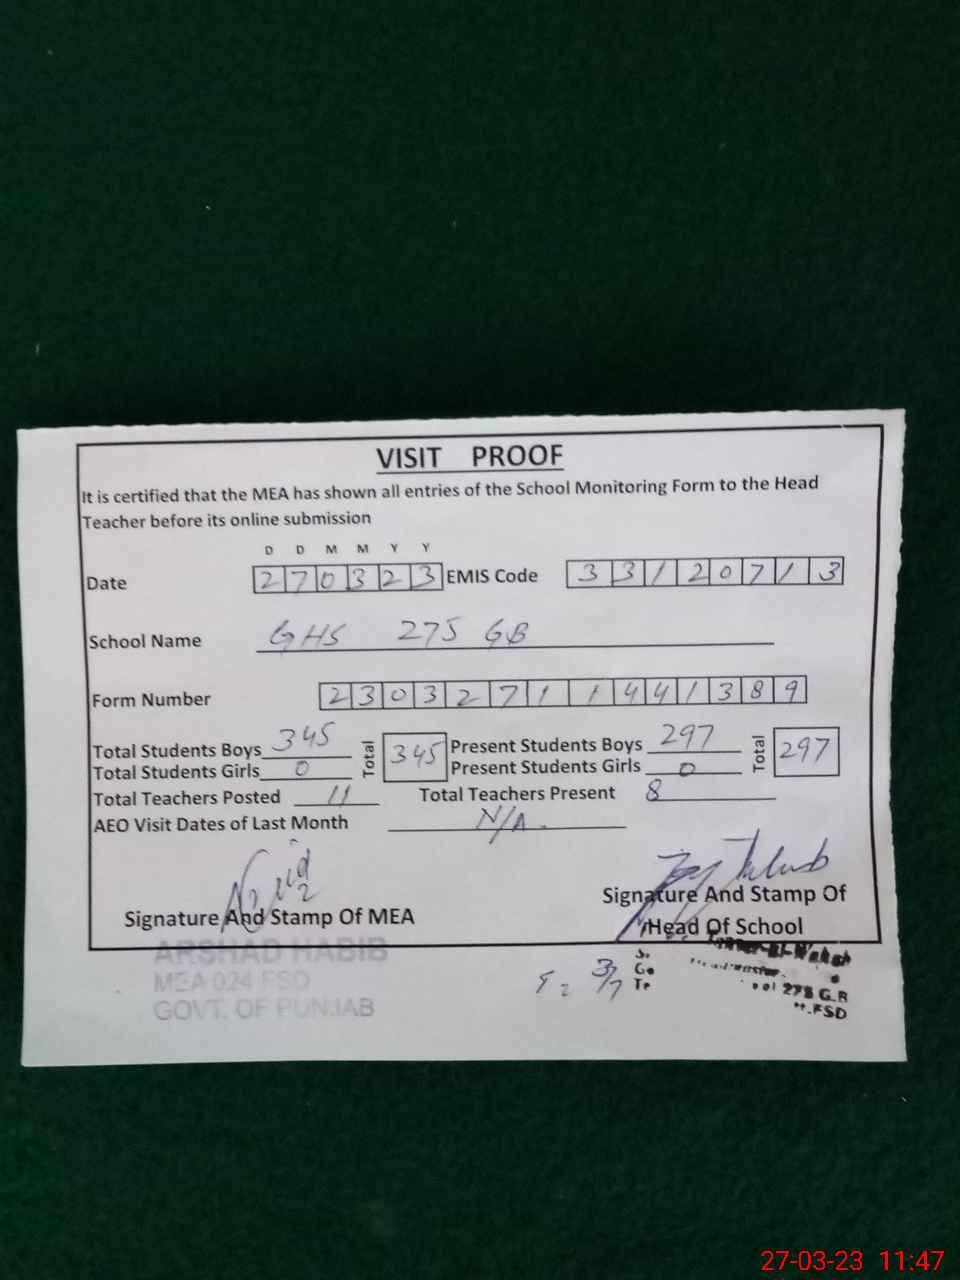 VISIT PROOF
It is certified that the MEA has shown all entries of the School Monitoring Form to the Head
Teacher before its online submission
D D M M Y Y
Date 270323 EMIS Code 33120713
School Name GHS 275 GB
Form Number 23032711441389
Total Students Boys 345 Total 345 Present Students Boys 297 Total 297
Total Students Girls 0 Present Students Girls 0
Total Teachers Posted 11 Total Teachers Present 8
AEO Visit Dates of Last Month N/A
Signature And Stamp Of MEA
Signature And Stamp Of
Head Of School
ARSHAD HABIB
MEA 024 FSD
GOVT. OF PUNJAB
FSD
27-03-23 11:47